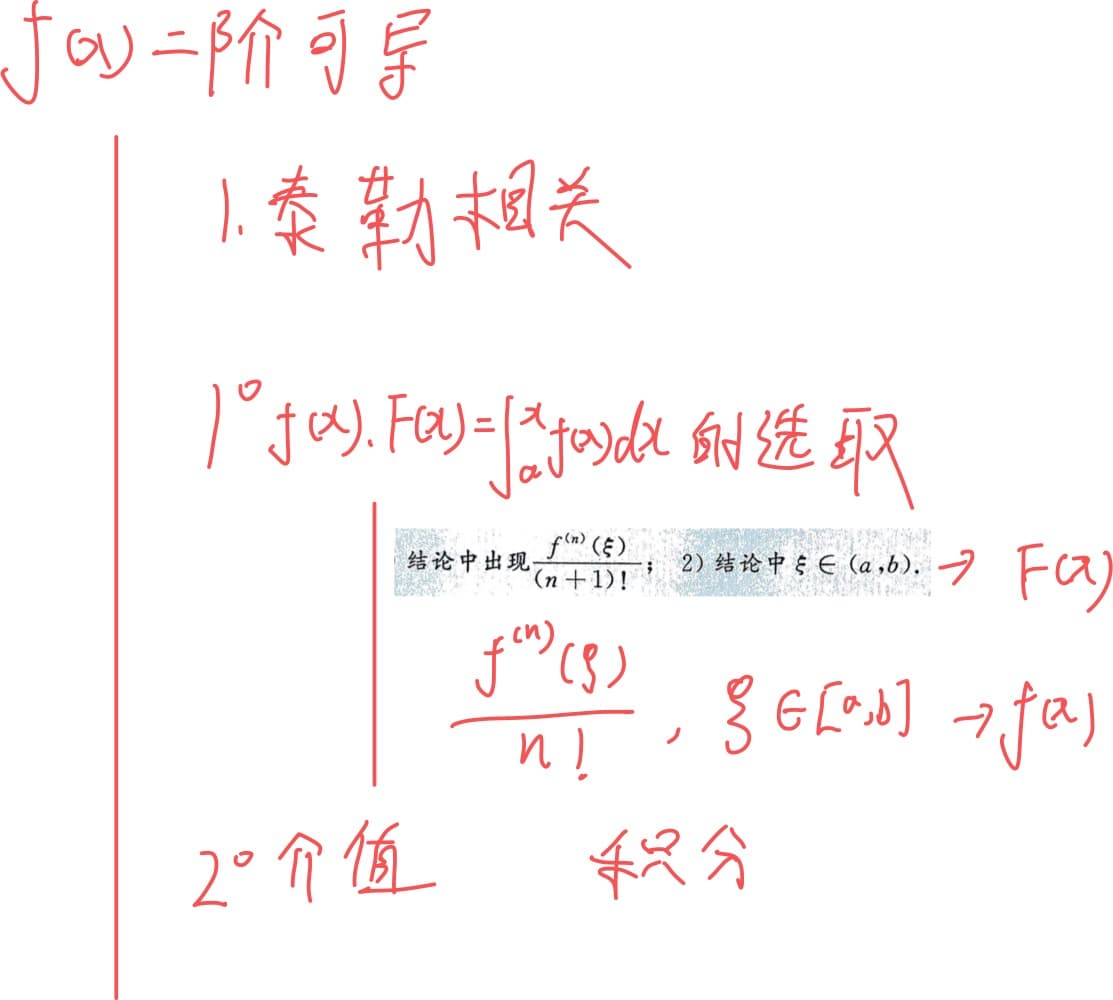 f(x)二阶可导
1.泰勒相关
1° f(x). F(x)=∫ₐˣf(x)dx的选取
结论中出现 f⁽ⁿ⁾(ξ)/(n+1)!； 2) 结论中 ξ∈(a,b). → F(x)
f⁽ⁿ⁾(ξ)/n!, ξ∈[a,b] → f(x)
2° 介值 积分